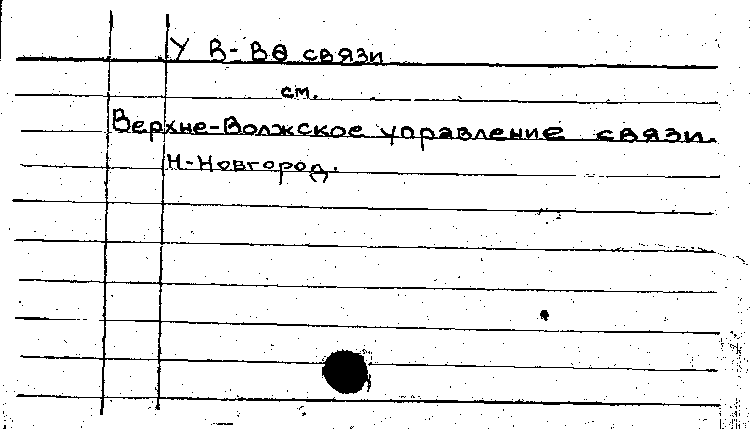 У В-Вө связи
см.
Верхне-Волжское управление связи.
Н-Новгород.